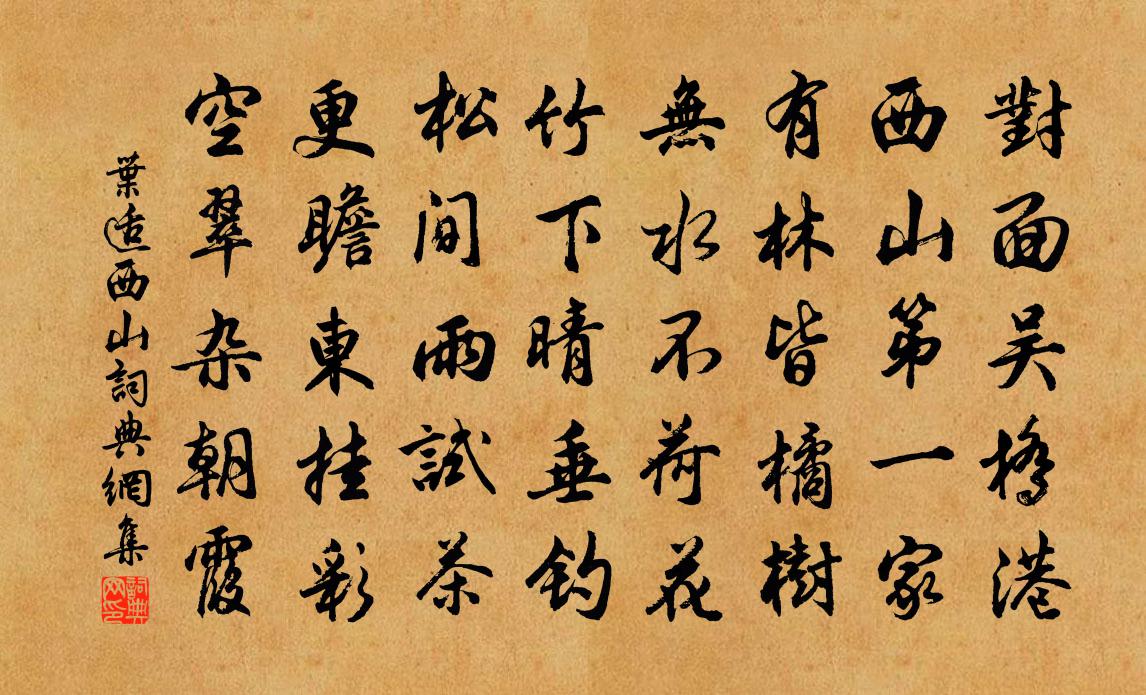 對面吴橋港
西山第一家
有林皆橘樹
無水不荷花
竹下晴垂釣
松間雨試茶
更瞻東挂彩
空翠杂朝霞
葉适西山詞典網集
詞典网印